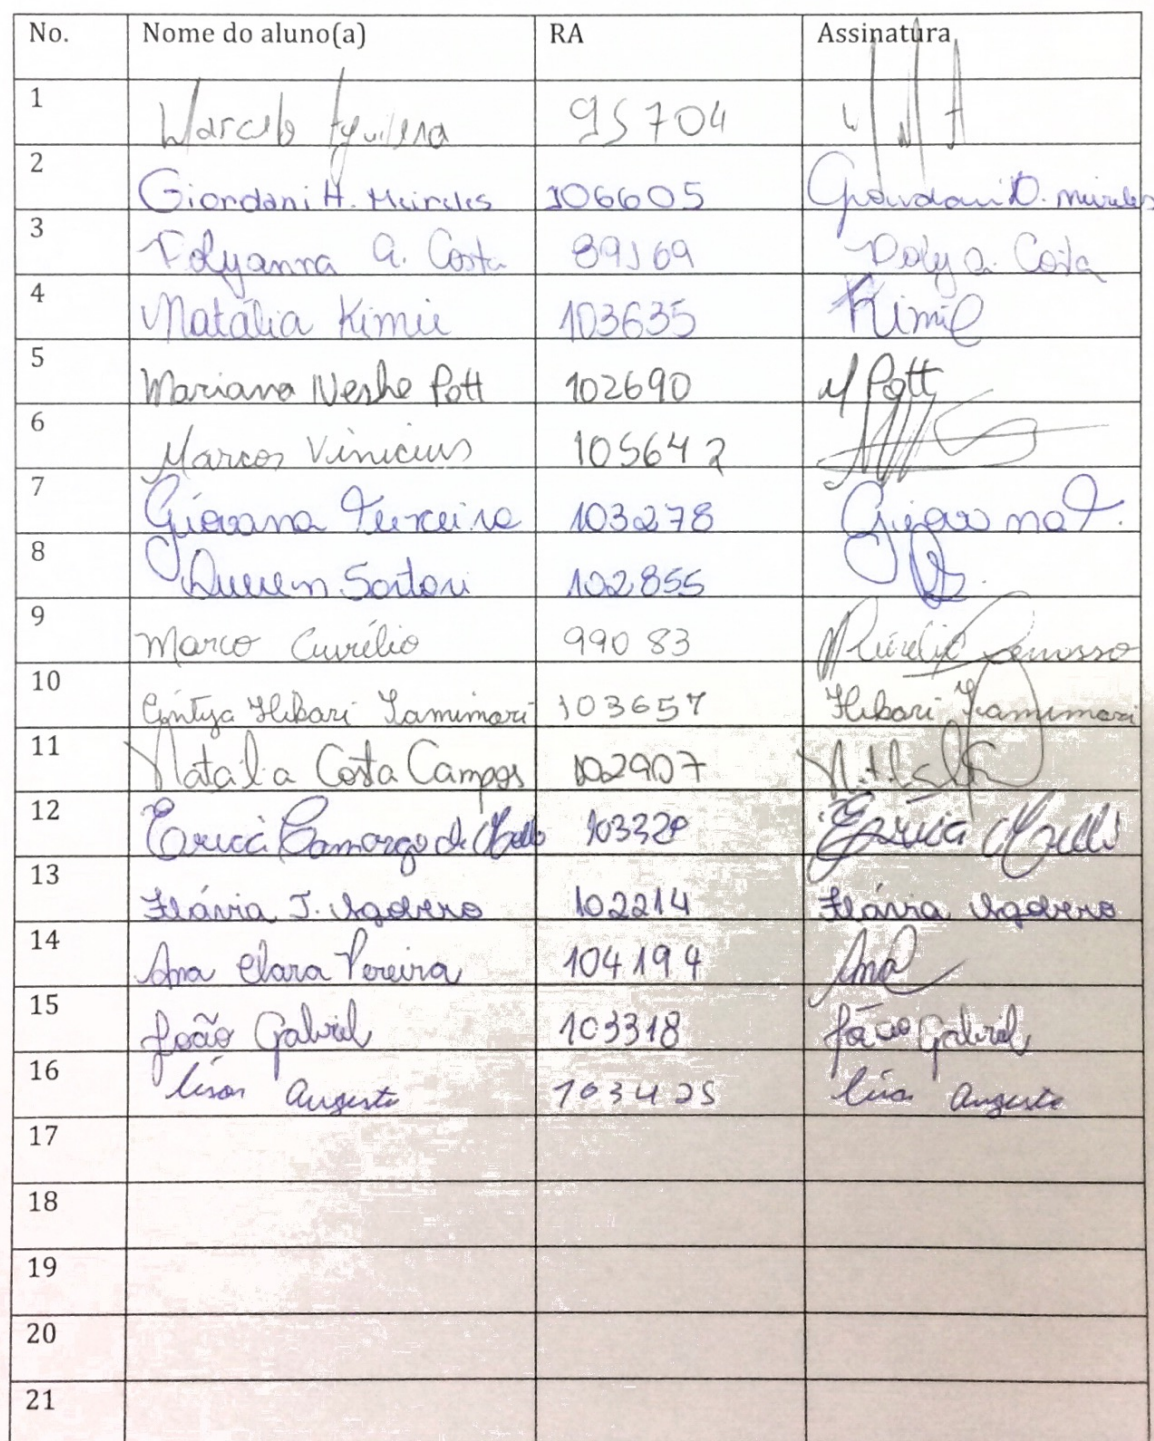 No. Nome do aluno(a) RA Assinatura
1 Marcelo Aguilera 95704
2 Giordani H. Meireles 106605
3 Polyanna A. Costa 89169 Poly a. Costa
4 Natália Kimie 103635 Kimie
5 Mariana Neshe Pott 102690 M Pott
6 Marcos Vinicius 105642
7 Giovana Teixeira 103278 Giovana T.
8 Sartori 102855
9 Marco Aurélio 99083 Aurélio
10 Cintya Hikari Iamimori 103657 Hikari Iamimori
11 Natalia Costa Campos 102907
12 Erica Camargo de Mello Erica Mello
13 Flávia J. 102214 Flávia
14 Ana Clara Pereira 104194 Ana
15 João Gabriel 103318 João Gabriel
16 Augusto 103425 Augusto
17
18
19
20
21